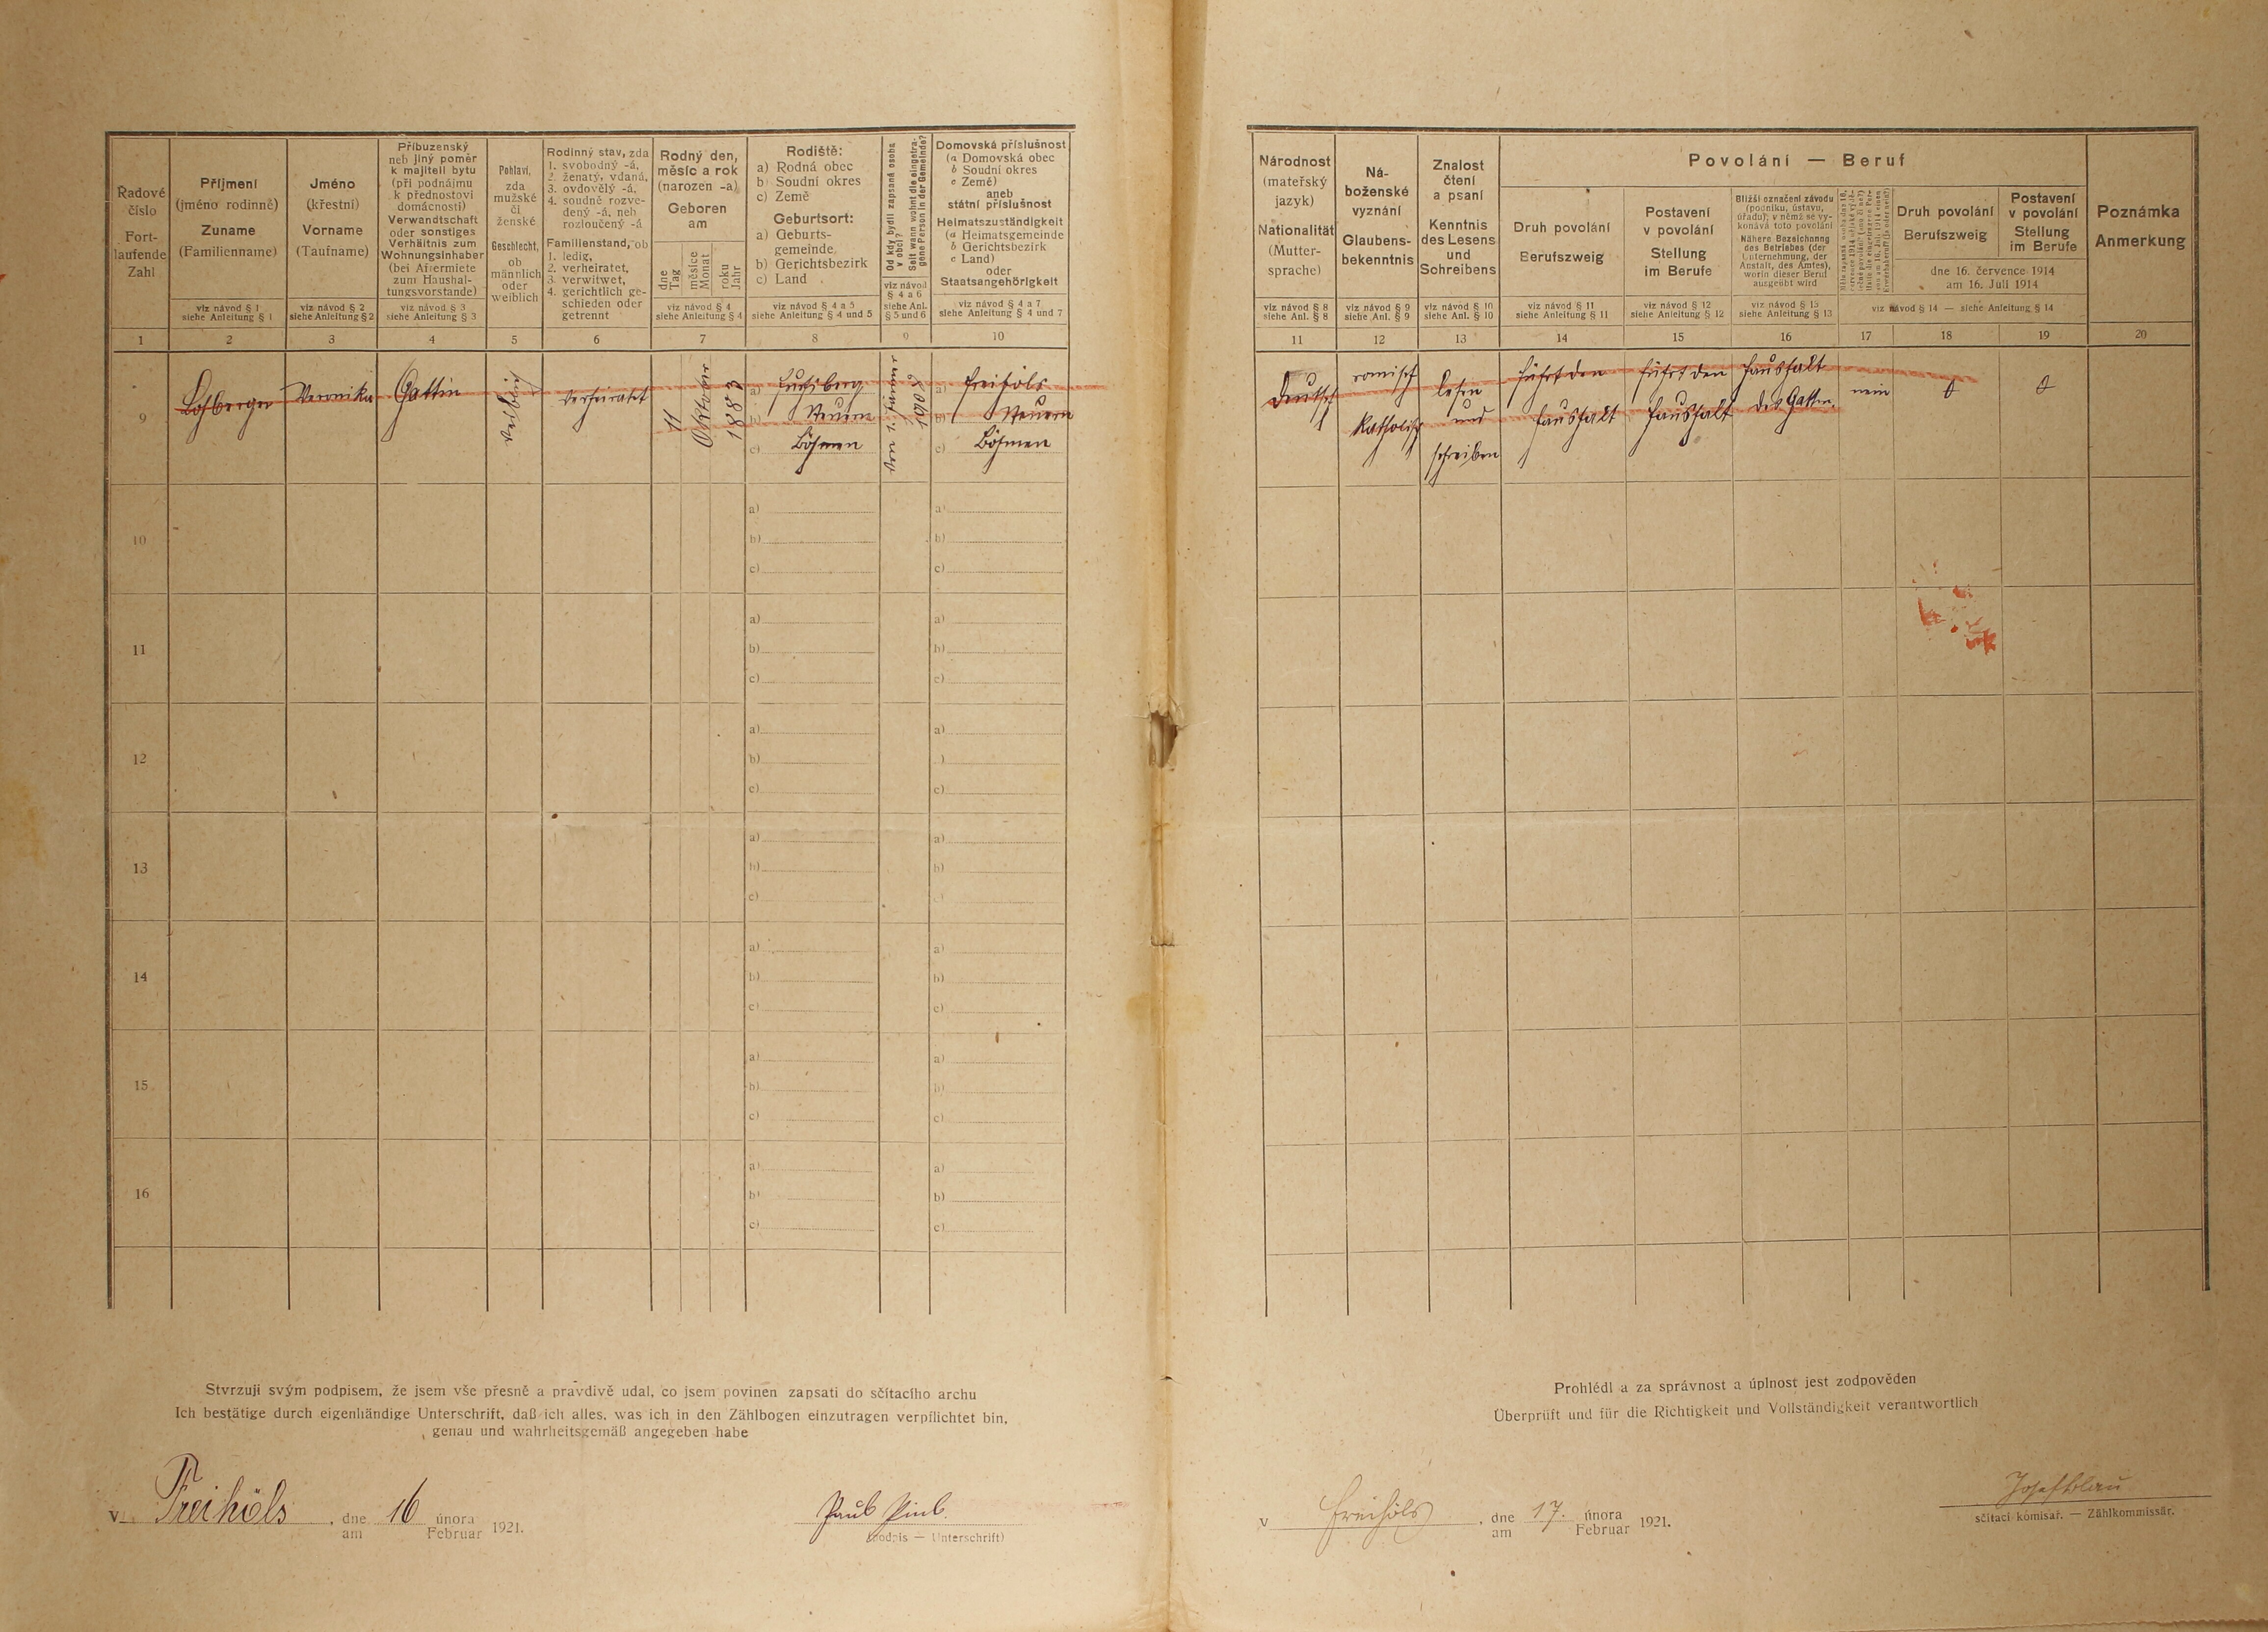 Řadové
číslo
Fort-
laufende
Zahl
Příjmení
(jméno rodinné)
Zuname
(Familienname)
viz návod § 1
siehe Anleitung § 1
Jméno
(křestní)
Vorname
(Taufname)
viz návod § 2
siehe Anleitung § 2
Příbuzenský
neb jiný poměr
k majiteli bytu
(při podnájmu
k přednostovi
domácnosti)
Verwandtschaft
oder sonstiges
Verhältnis zum
Wohnungsinhaber
(bei Aftermiete
zum Haushal-
tungsvorstande)
viz návod § 3
siehe Anleitung § 3
Pohlaví,
zda
mužské
či
ženské
Geschlecht,
ob
männlich
oder
weiblich
Rodinný stav, zda
1. svobodný -á,
2. ženatý, vdaná,
3. ovdovělý -á,
4. soudně rozve-
dený -á, neb
rozloučený -á
Familienstand, ob
1. ledig,
2. verheiratet,
3. verwitwet,
4. gerichtlich ge-
schieden oder
getrennt
Rodný den,
měsíc a rok
(narozen -a)
Geboren
am
dne
Tag
měsíce
Monat
roku
Jahr
viz návod § 4
siehe Anleitung § 4
Rodiště:
a) Rodná obec
b) Soudní okres
c) Země
Geburtsort:
a) Geburts-
gemeinde,
b) Gerichtsbezirk
c) Land
viz návod § 4 a 5
siehe Anleitung § 4 und 5
Od kdy bydlí zapsaná osoba
v obci?
Seit wann wohnt die eingetra-
gene Person in der Gemeinde?
viz návod
§ 4 a 6
siehe Anl.
§ 5 und 6
Domovská příslušnost
(a Domovská obec
b Soudní okres
c Země)
aneb
státní příslušnost
Heimatszuständigkeit
(a Heimatsgemeinde
b Gerichtsbezirk
c Land)
oder
Staatsangehörigkeit
viz návod § 4 a 7
siehe Anleitung § 4 und 7
1 2 3 4 5 6 7 8 9 10
9 Losberger Veronika Gattin weiblich verheiratet 11 Oktober 1883
a) Fuchsberg
b) Neuern
c) Böhmen
den 1. Jänner
1909
a) Freihöls
b) Neuern
c) Böhmen
10
a)
b)
c)
a)
b)
c)
11
a)
b)
c)
a)
b)
c)
12
a)
b)
c)
a)
)
c)
13
a)
b)
c)
a)
b)
14
a)
b)
c)
a)
b)
c)
15
a)
b)
c)
a)
b)
c)
16
a)
b)
c)
a)
b)
c)
Stvrzuji svým podpisem, že jsem vše přesně a pravdivě udal, co jsem povinen zapsati do sčítacího archu
Ich bestätige durch eigenhändige Unterschrift, daß ich alles, was ich in den Zählbogen einzutragen verpflichtet bin,
genau und wahrheitsgemäß angegeben habe
V Freihöls, dne 16 února 1921.
am Februar
(podpis — Unterschrift)
Národnost
(mateřský
jazyk)
Nationalität
(Mutter-
sprache)
viz návod § 8
siehe Anl. § 8
Ná-
boženské
vyznání
Glaubens-
bekenntnis
viz návod § 9
siehe Anl. § 9
Znalost
čtení
a psaní
Kenntnis
des Lesens
und
Schreibens
viz návod § 10
siehe Anl. § 10
Povolání — Beruf
Druh povolání
Berufszweig
viz návod § 11
siehe Anleitung § 11
Postavení
v povolání
Stellung
im Berufe
viz návod § 12
siehe Anleitung § 12
Bližší označení závodu
(podniku, ústavu,
úřadu), v němž se vy-
konává toto povolání
Nähere Bezeichnung
des Betriebes (der
Unternehmung, der
Anstalt, des Amtes),
worin dieser Beruf
ausgeübt wird
viz návod § 13
siehe Anleitung § 13
Druh povolání
Berufszweig
Postavení
v povolání
Stellung
im Berufe
dne 16. července 1914
am 16. Juli 1914
viz návod § 14 — siehe Anleitung § 14
Poznámka
Anmerkung
11 12 13 14 15 16 17 18 19 20
Deutsch
römisch
katholisch
lesen
und
schreiben
führt den
Haushalt
führt den
Haushalt
Haushalt
des Gatten.
nein
Prohlédl a za správnost a úplnost jest zodpověden
Überprüft und für die Richtigkeit und Vollständigkeit verantwortlich
V Freihöls, dne 17. února 1921.
am Februar
Josef Blau
sčítací komisař. — Zählkommissär.